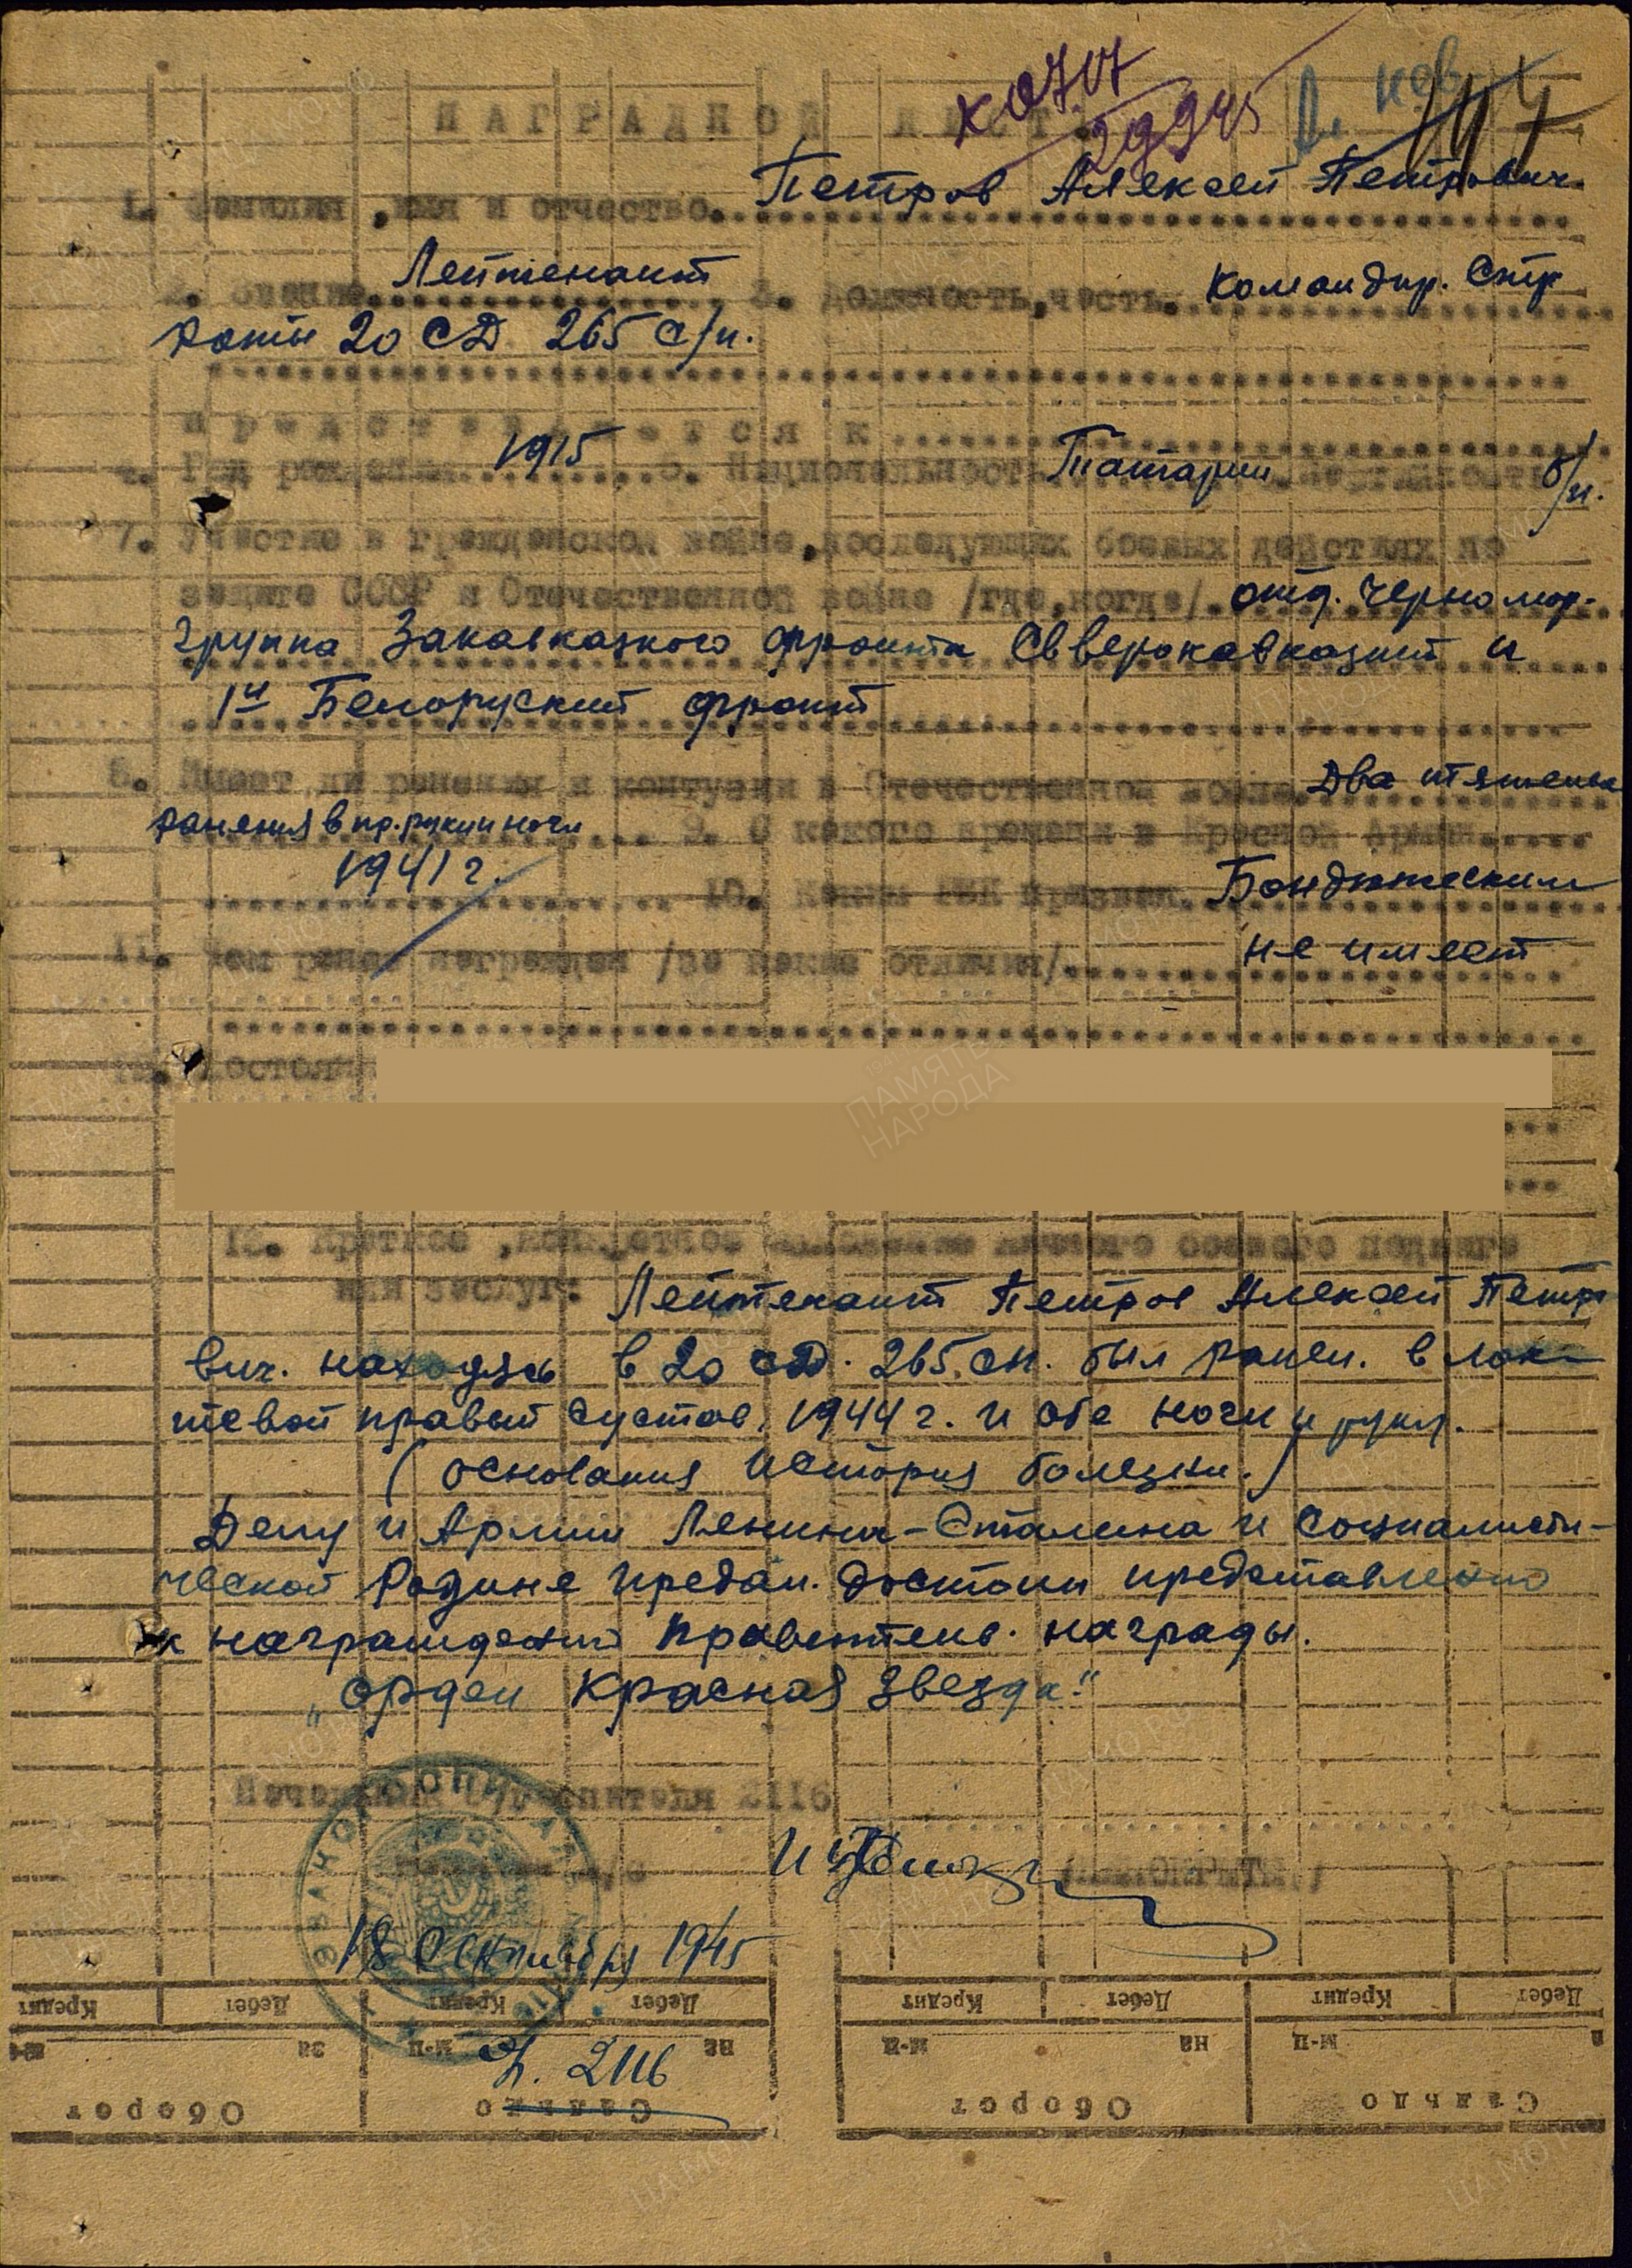 НАГРАДНОЙ ЛИСТ.
1. Фамилия, имя и отчество. Петров Алексей Петрович.
2. Звание Лейтенант 3. Должность, часть. Командир. Стр
роты 20 СД 265 с/п.
Представляется к
4. Год рождения 1915 5. Национальность Татарин 6. Партийность б/п.
7. Участие в гражданской войне, последующих боевых действиях по
защите СССР и Отечественной войне /где, когда/ отд. Черномор.
группа Закавказкого фронта Свверокавказкит и
1й Белоруский фронт
8. Имеет ли ранения и контузии в Отечественной войне Два тяжелых
ранения в пр. руки и ноги 9. С какого времени в Красной Армии
1941 г. 10. Каким РВК призван. Бондюжским
11. Чем ранее награжден /за какие отличия/ не имеет
12.
13. Краткое, конкретное изложение личного боевого подвига
или заслуг: Лейтенант Петров Алексей Петро
вич. находясь в 20 сд. 265. сп. был ранен. в лок-
тевой правый сустав, 1944 г. и обе ноги и руку.
(основания история болезни.)
Делу и Армии Ленина-Сталина и социалисти-
ческой Родине предан. Достоин представлению
к награждению правительв. награды.
„орден Красная звезда."
Начальник эвакогоспиталя 2116
18 октября 1945
2116
Кредит Дебет Кредит Дебет Кредит Дебет Кредит Дебет
за м-ц на м-ц на м-ц
Оборот Сальдо Оборот Сальдо
ПАМЯТЬ
НАРОДА